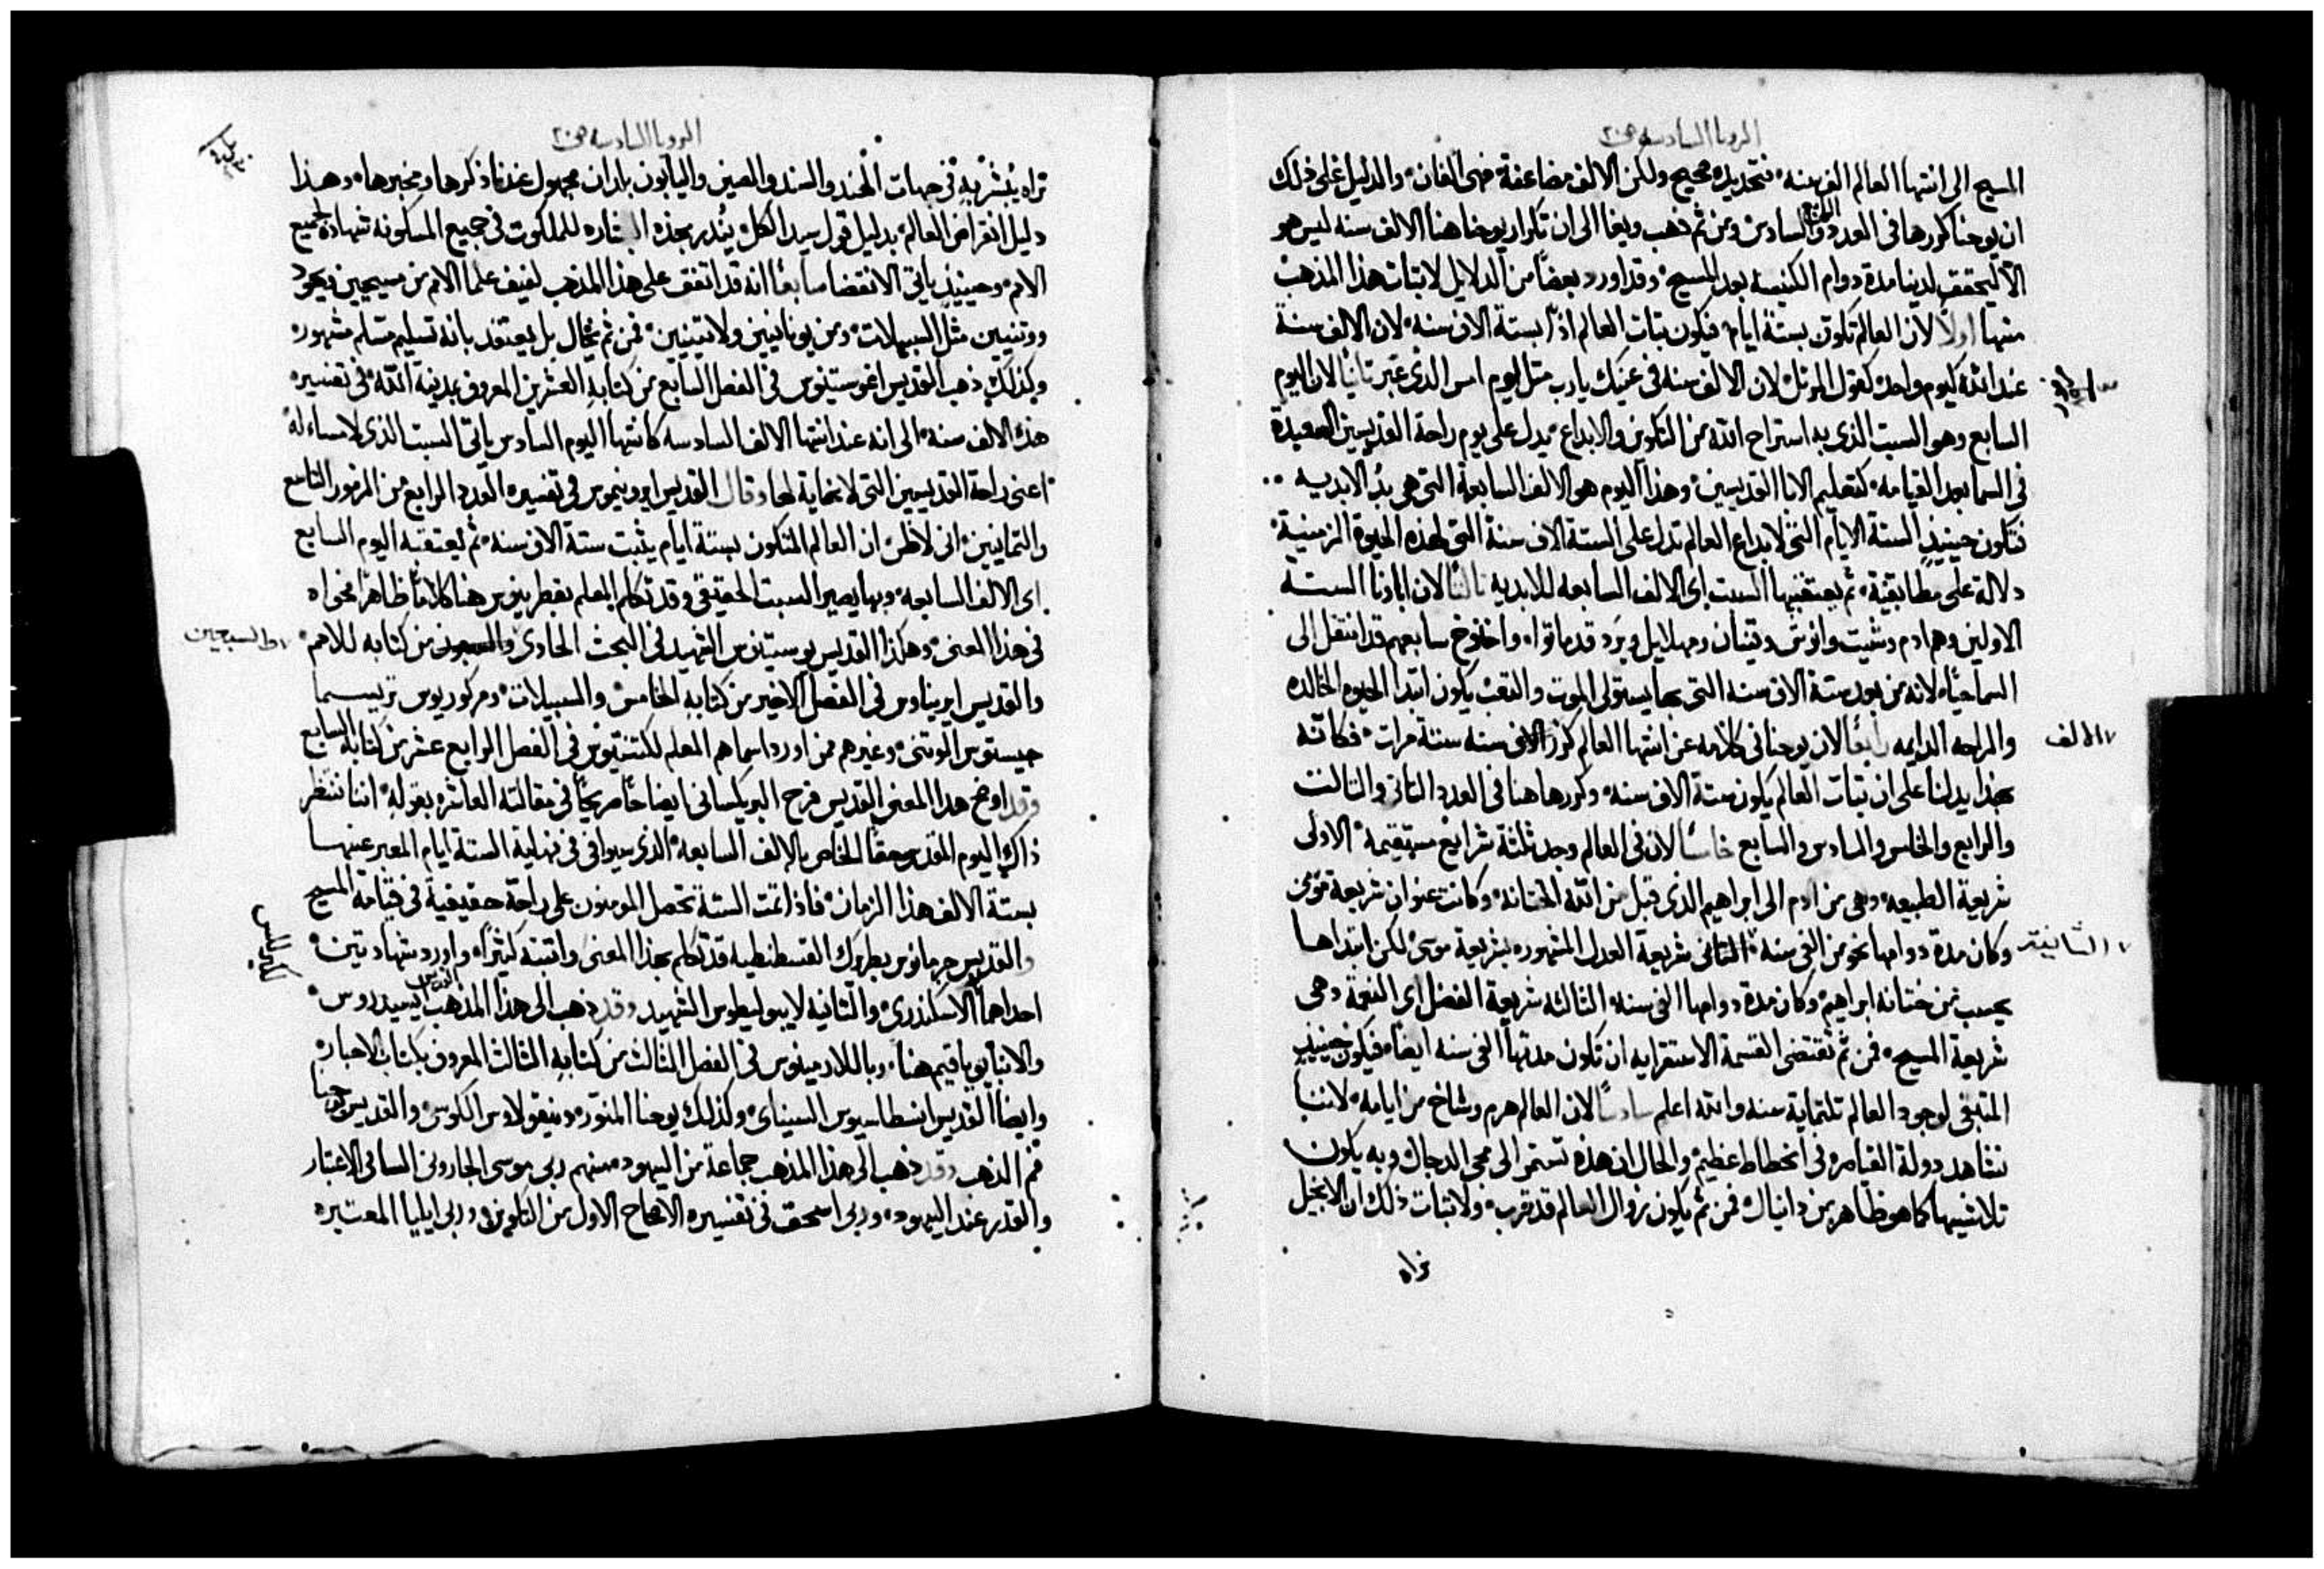 الرويا السادسه ص ٢٠
المسيح الى انتها العالم الف سنه، فتحديده صحيح ولكن الالف مضاعفة فهى الفان، والدليل على ذلك
ان يوحنا كررها فى العدد الرابع والسادس ومن ثم ذهب ويغا الى ان تكرار يوحنا هنا الالف سنه ليس هو
الا ليحقق لدينا مدة دوام الكنيسه بعد المسيح، وقد اورد بعضا من الدلايل لاثبات هذا المذهب
منها اولا لان العالم تكون بستة ايام، فيكون ثبات العالم اذا بستة الاف سنه، لان الالف سنة
عند الله كيوم واحد كقول المرتل لان الالف سنه فى عينيك يا رب مثل اليوم امس الذى عبر ثانيا لان اليوم
السابع وهو السبت الذى به استراح الله من التكوين والابداع، يدل على يوم راحة القديسين السعيدة
فى السما بعد القيامه، كتعليم الابا القديسين، وهذا اليوم هو الالف السابعة التى هى بدُ الابديه
فتكون حينيذٍ الستة الايام التى لابداع العالم تدل على الستة الاف سنة التى لهذه الحيوة الزمنية
دلالة على مطابقية، ثم يعتقبها السبت اى الالف السابعه للابديه ثالثا لان ابانا الستة
الاولين وهم ادم وشيت وانوش وقينان ومهلاييل ويَرَد قد ماتوا، واخنوخ سابعهم قد انتقل الى
السما حيًا، لانه من بعد ستة الاف سنه التى بها يستولى الموت والتعب يكون ابتدا الحيوه الخالده
والراحه الدايمه رابعًا لان يوحنا فى كلامه عن انتها العالم كرر الالف سنه ستة مرات، فكانه
بهذا يدلنا على ان ثبات العالم يكون ستة الاف سنه، وكررها هنا فى العدد الثانى والثالث
والرابع والخامس والسادس والسابع خامسًا لان فى العالم وجد ثلثة شرايع مستقيمة، الاولى
شريعة الطبيعه، وهى من ادم الى ابراهيم الذى قبل من الله الختانة، وكانت عنوان شريعة موسى
وكان مدة دوامها نحو من الفى سنه، الثانى شريعة العدل المشهوره بشريعة موسى، لكن ابتداها
يحسب من ختانه ابراهيم، وكان مدة دوامها الفى سنه، الثالثه شريعة الفضل اى النعمة، وهى
شريعة المسيح، فمن ثم تقتضى القسمة الاستقرايه ان تكون مدتها الفى سنه ايضا، فيكون حينيذٍ
المتبقى لوجود العالم ثلثماية سنه والله اعلم سادسًا لان العالم هرم وشاخ من ايامه، لاننا
نشاهد دولة القياصره فى انحطاط عظيم، والحال ان هذه تستمر الى مجى الدجال وبه يكون
تلاشيها كما هو ظاهر من دانيال، فمن ثم يكون زوال العالم قد قرب، ولاثبات ذلك ان الانجيل
نراه
٧ الالف
٧ الثانية
الرويا السادسه ص ٢٠
نراه يُبشَّر بهِ فى جهات الهند والسند والصين واليابون بلدان مجهول عندنا ذكرها ومخبرها، وهذا
دليل انقراض العالم، بدليل قول سيد الكل، يُنذر بهذه البشاره للملكوت فى جميع المسكونه شهادة لجميع
الامم، وحينيذٍ ياتى الانقضا سابعًا انه قد اتفق على هذا المذهب لفيف علما الامم من مسيحيين ويهود
ووثنيين مثل السيبيلات، ومن يونانيين ولاتينيين، فمن ثم يخال بل يعتقد بانه تسليم متسلم مشهور،
وكذلك ذهب القديس اغوستينوس فى الفصل السابع من كتابهِ العشرين المعروف بمدينة الله، فى تفسيره
هذه الالف سنه، الى انه عند انتها الالف السادسه كانتها اليوم السادس ياتى السبت الذى لا مساء له
اعنى راحة القديسين التى لا نهاية لها، وقال القديس ايرونيموس فى تفسيره العدد الرابع من المزمور التاسع
والثمانيين، انى لاظن ان العالم المتكون بستة ايام يثبت ستة الاف سنه، ثم يعتقبه اليوم السابع
اى الالف السابعه، وبها يصير السبت الحقيقى وقد تكلم المعلم بقطرينوس هنا كلامًا ظاهرًا فحواه
فى هذا المعنى، وهكذا القديس يوستينوس الشهيد فى البحث الحادى والسبعون من كتابه للامم
والقديس ايريناوس فى الفصل الاخير من كتابهِ الخامس، والسيبيلات، ومركوريوس تريسما
جيستوس الوثنى، وغيرهم ممن اورد اسماهم المعلم لكتنتيوس فى الفصل الرابع عشر من كتابه السابع
وقد اوضح هذا المعنى القديس فرح البريكسانى ايضاحًا صريحًا فى مقالته العاشره بقوله، اننا ننتظر
ذاك اليوم المقدس حقًا الخاص بالالف السابعه، الذى سيوافى فى نهاية الستة ايام المعبر عنها
بستة الالف هذا الزمان، فاذا تمت الستة تحصل المومنون على راحة حقيقية فى قيامة المسيح
والقديس جرمانوس بطريرك القسطنطيه قد تكلم بهذا المعنى واثبته كثيرًا، واورد شهادتين
احداهما الاسكندرى، والثانيه لايبوليطوس الشهيد وقد ذهب الى هذا المذهب القديس ايسيدروس
والانبا يواقيم هنا، وبالادمينوس فى الفصل الثالث من كتابه الثالث المعروف بكتاب الاحبار
وايضا القديس انسطاسيوس السيناى، وكذلك يوحنا المنوّر، ونيقولاوس الكوسى، والقديس يوحنا
فم الذهب وقد ذهب الى هذا المذهب جماعة من اليهود، منهم ربى موسى الحارونى السامى الاعتبار
والقدر عند اليهود، وربى اسحق فى تفسيره الاصحاح الاول من التكوين، وربى ايليا المعتبره
٧ ط السبعين